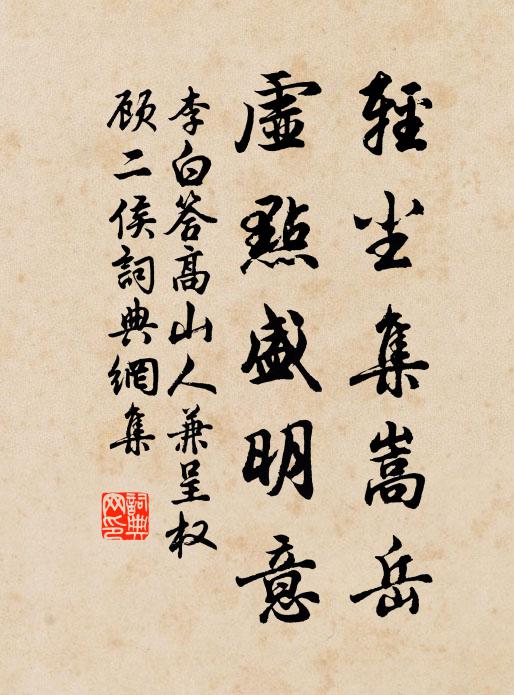 輕尘集嵩岳
虛點盛明意
李白答高山人兼呈权
顾二侯詞典網集
詞典网印